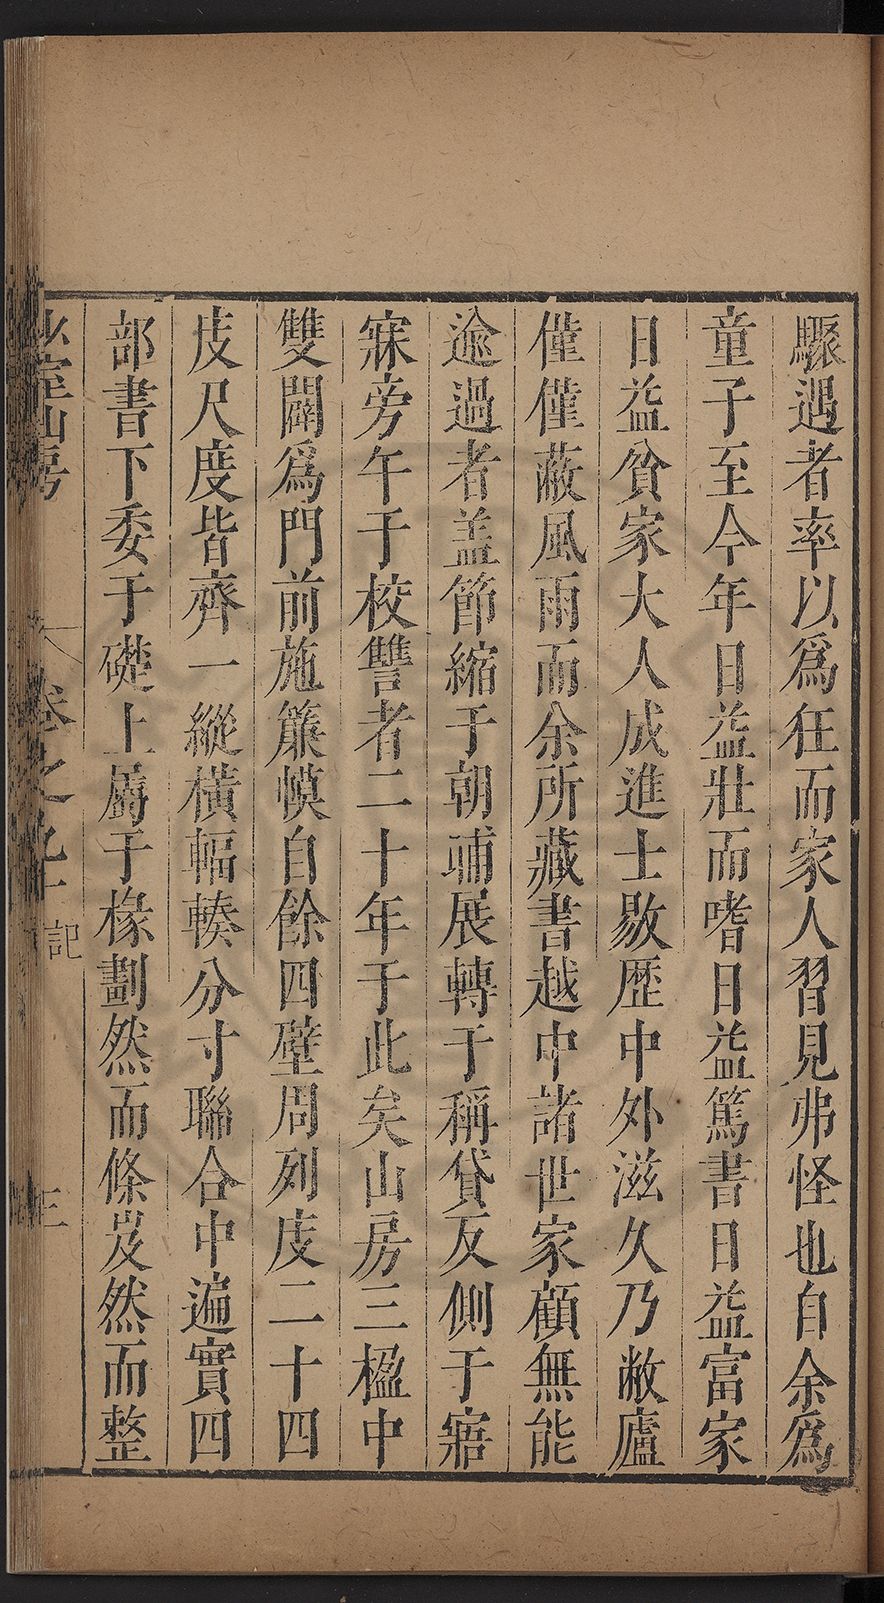 驟遇者率以爲狂而家人習見弗怪也自余爲
童子至今年日益壯而嗜日益篤書日益富家
日益貧家大人成進士敭歴中外滋久乃敝廬
僅僅蔽風雨而余所藏書越中諸世家顧無能
逾過者盖節縮于朝晡展轉于稱貸反側于寤
寐旁午于校讐者二十年于此矣山房三楹中
雙闢爲門前施簾幙自餘四壁周列庋二十四
庋尺度皆齊一縱橫輻輳分寸聯合中遍實四
部書下委于礎上屬于椽劃然而條岌然而整
少室山房 卷之九十 記 三